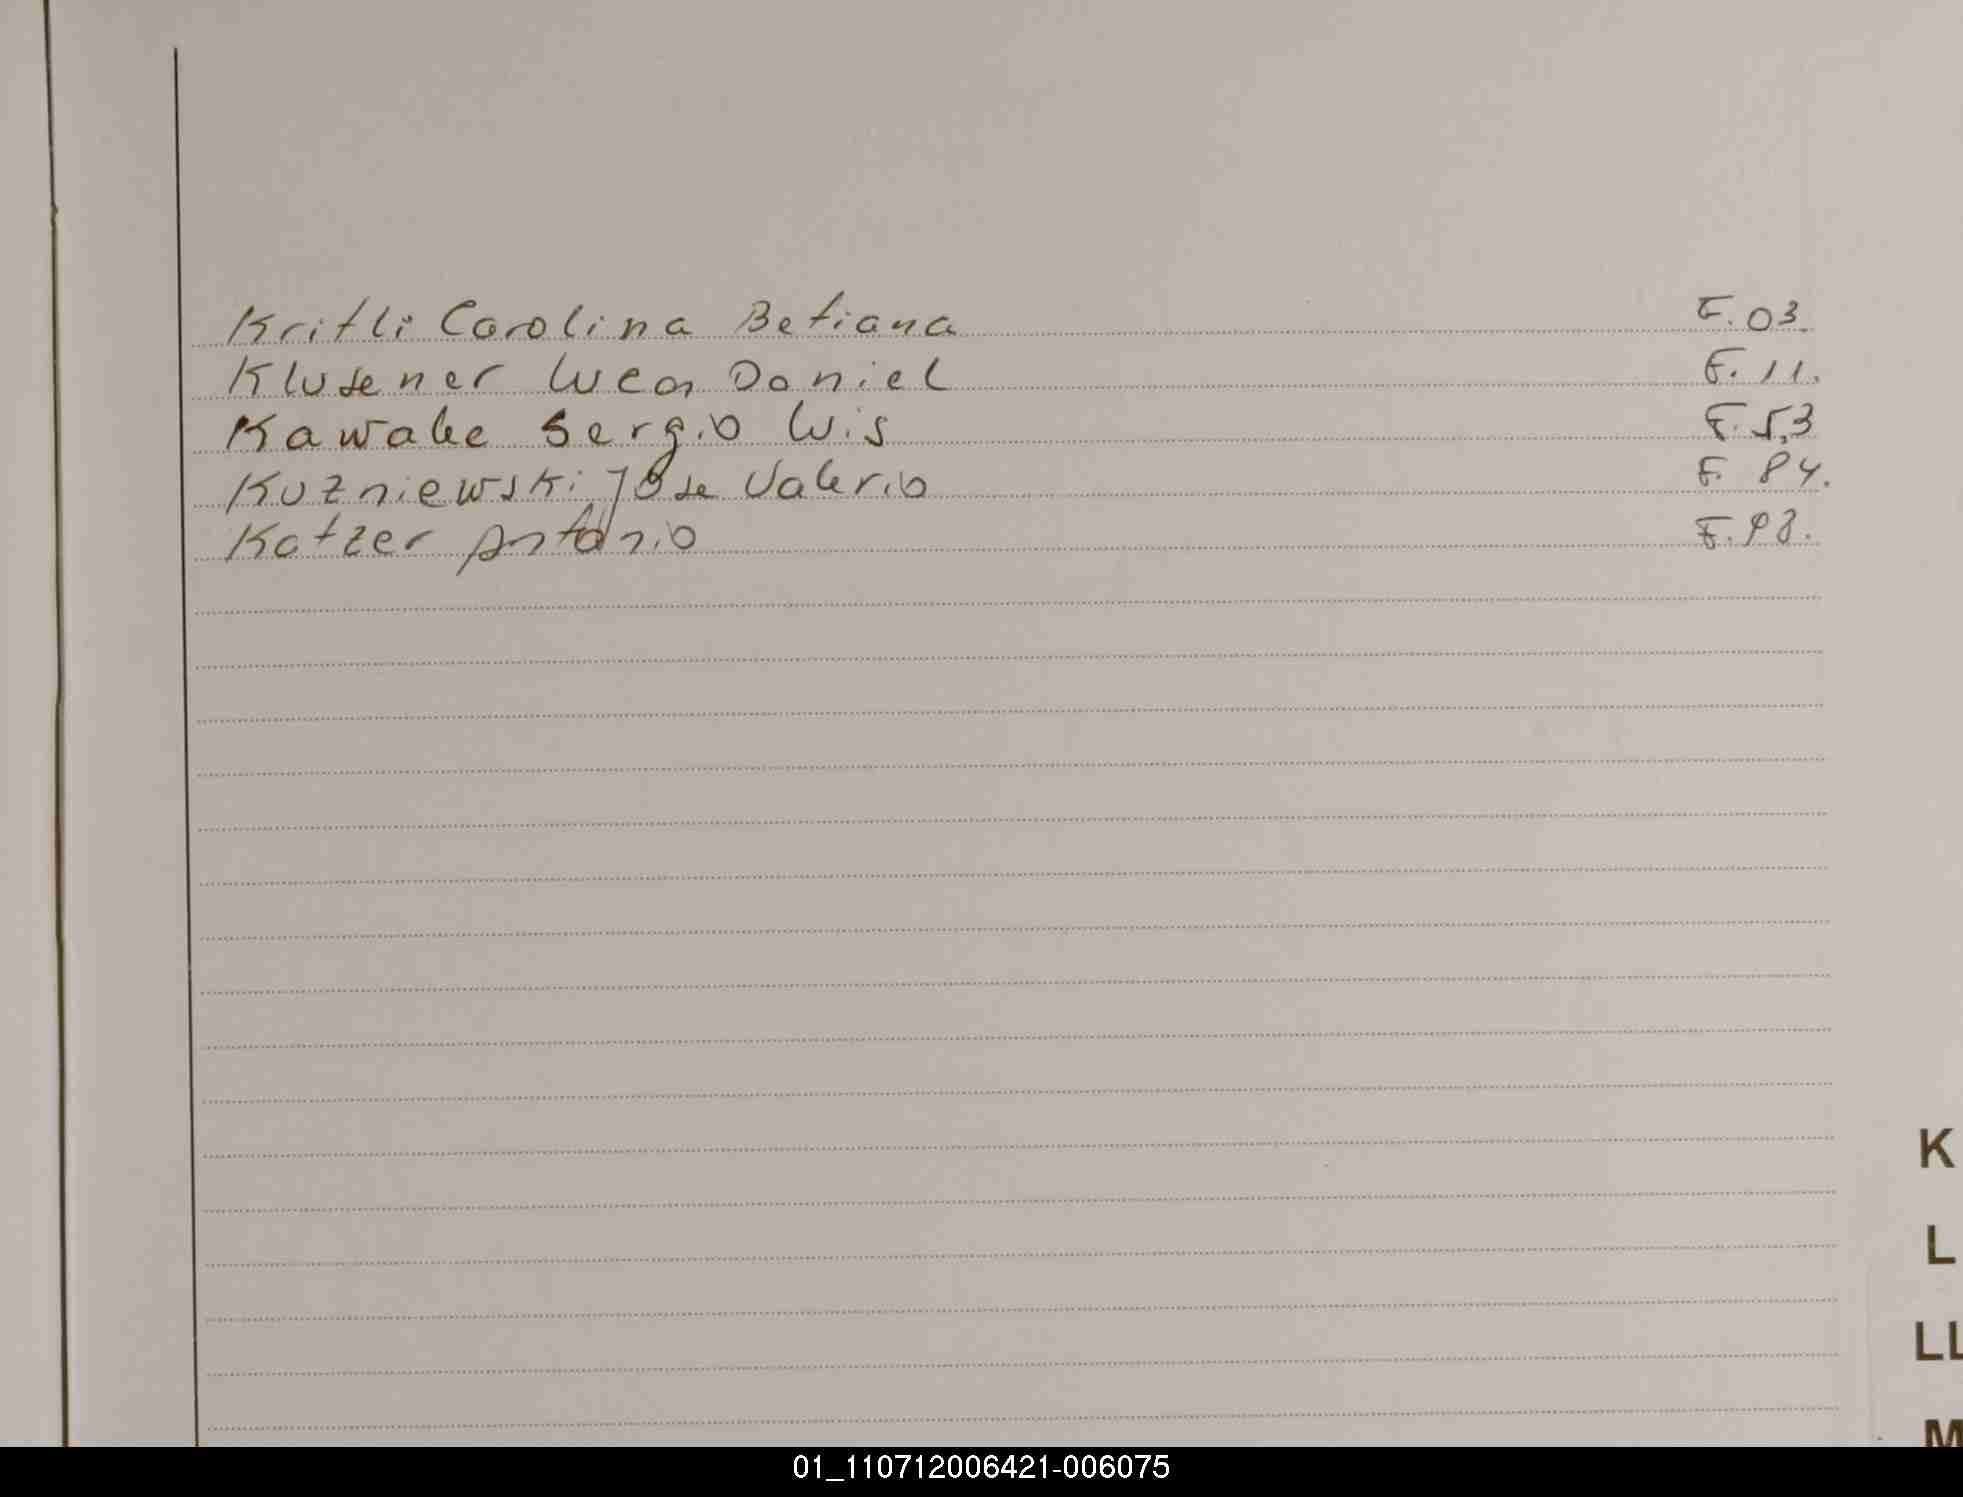 Kritli Carolina Betiana F.03.
Klusener Lucas Daniel F.11.
Kawake Sergio Luis F.53
Kuzniewski Jose Valerio F.84.
Katzer Antonio F.98.
K
L
LL
M
01_110712006421-006075